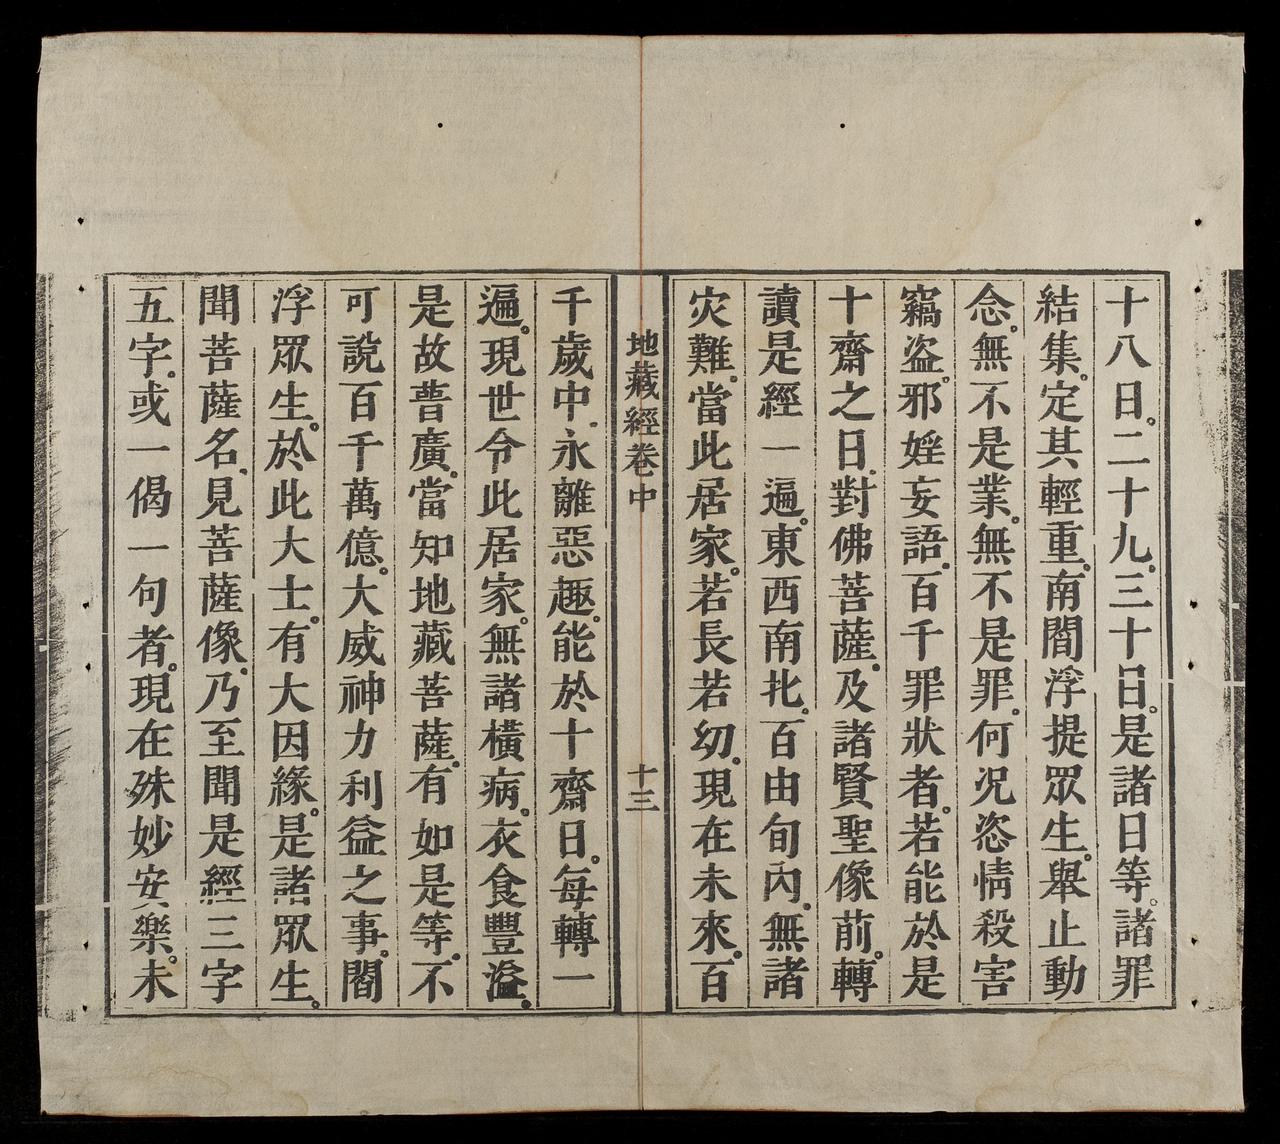 十八日。二十九。三十日。是諸日等。諸罪
結集。定其輕重。南閻浮提眾生。舉止動
念。無不是業。無不是罪。何况恣情殺害
竊盜。邪婬妄語。百千罪狀者。若能於是
十齋之日。對佛菩薩。及諸賢聖像前。轉
讀是經一遍。東西南北。百由旬內。無諸
灾難。當此居家。若長若幼。現在未來。百
地藏經卷中
十三
千歲中。永離惡趣。能於十齋日。每轉一
遍。現世令此居家。無諸橫病。衣食豐溢。
是故普廣。當知地藏菩薩。有如是等。不
可說百千萬億。大威神力利益之事。閻
浮眾生。於此大士。有大因緣。是諸眾生。
聞菩薩名。見菩薩像。乃至聞是經三字
五字。或一偈一句者。現在殊妙安樂。未